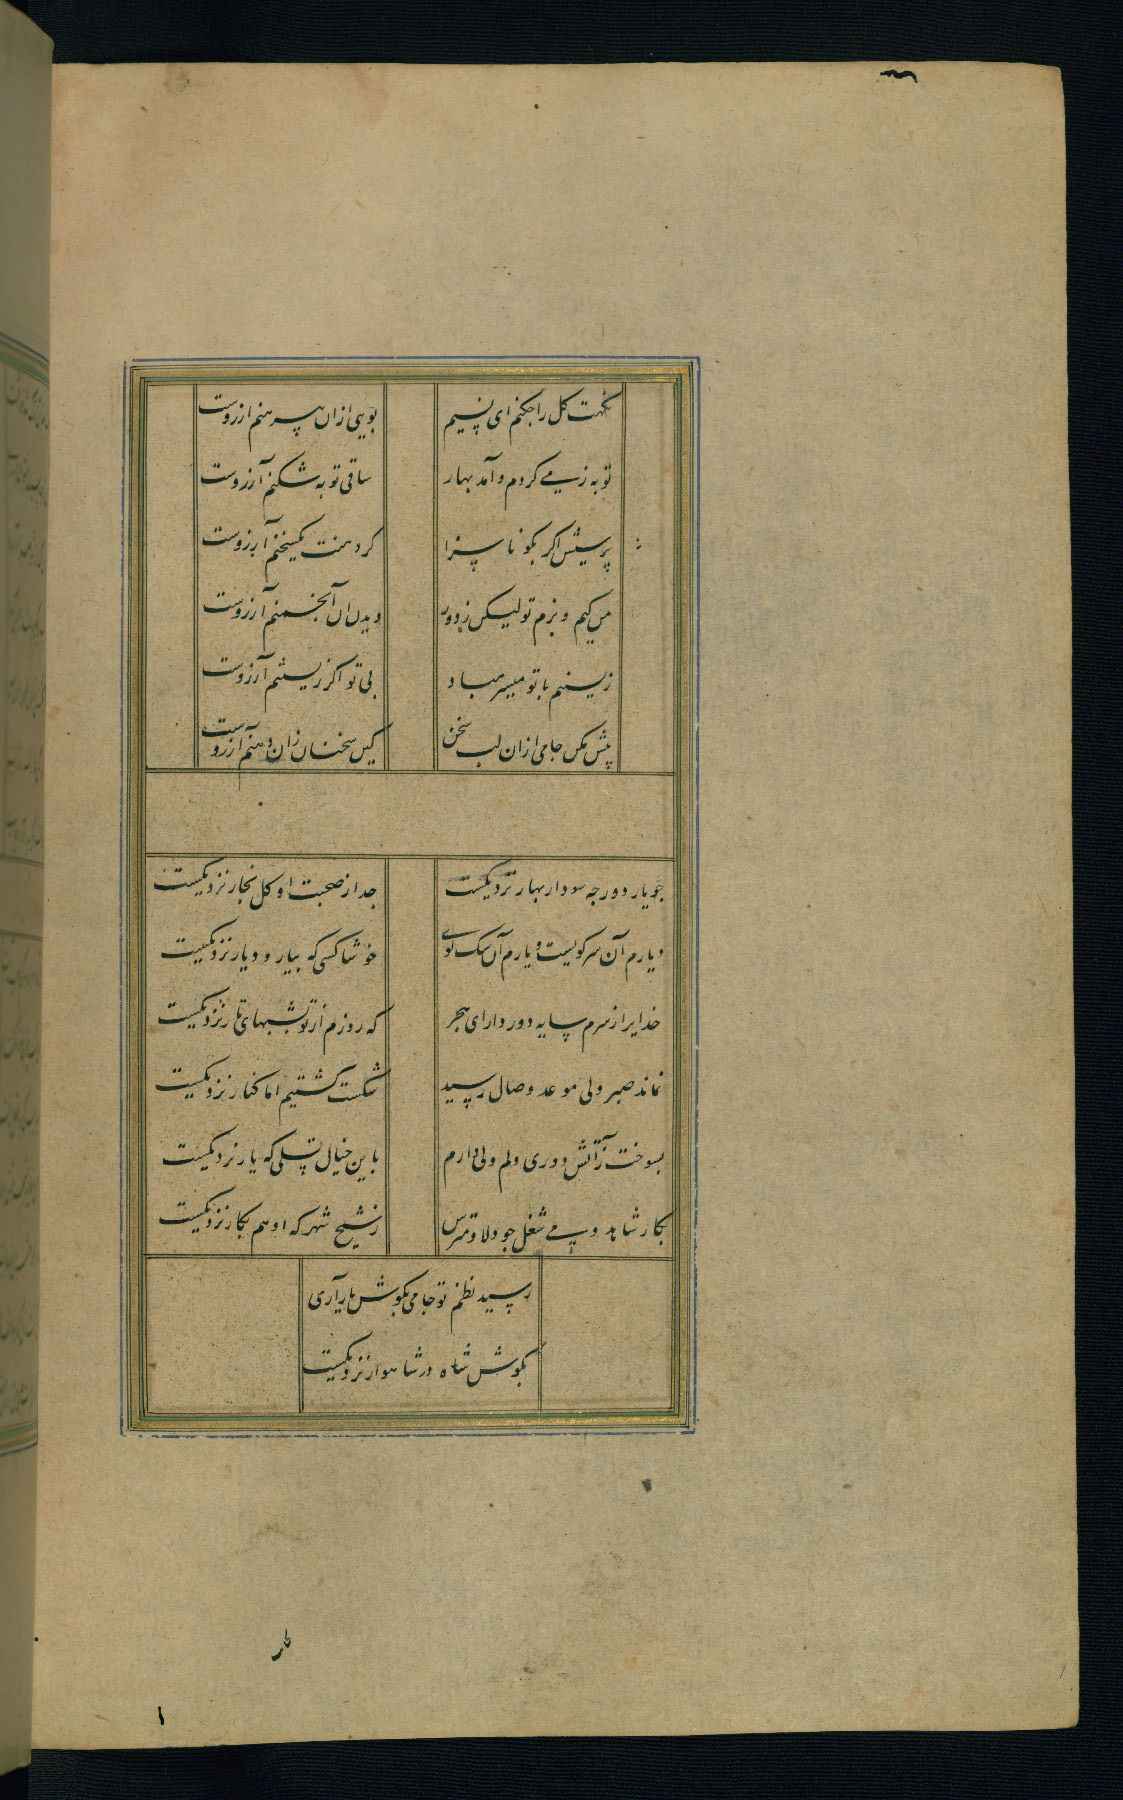 نکهت کل را چکنم ای نسیم بویی ازان پیرهنم ارزوست
توبه ز می کردم و آمد بهار ساقی توبه شکنم آرزوست
پرسش اکر بکو ناسزا کز دهنت یکسخنم آرزوست
من کیم و بزم تو لیکن ز دور دیدن ان آنجمنم آرزوست
زیستنم با تو میسر مباد بی تو اکر زیستنم آرزوست
بیش مکن جامی ازان لب سخن کین سخنان زان دهنم آرزوست
چو یار دور چه سود ار بهار نزدیکست جدا ز صحبت او کل بخار نزدیکست
دیارم آن سر کویست و یارم آن سک کوی خوشا کسی که بیار و دیار نزدیکست
خدایرا ز سرم سایه دور دار ای هجر که روزم از تو بشبهای تار نزدیکست
نماند صبر ولی موعد وصال رسید شکست کشتیم اما کنار نزدیکست
بسوخت زآتش دوری دلم ولی دارم باین خیال تسلی که یار نزدیکست
بکار شاهد و می شغل جو دلا و مترس ز شیخ شهر که او هم بکار نزدیکست
رسید نظم تو جامی بکوش یار آری
بکوش شاه در شاهوار نزدیکست